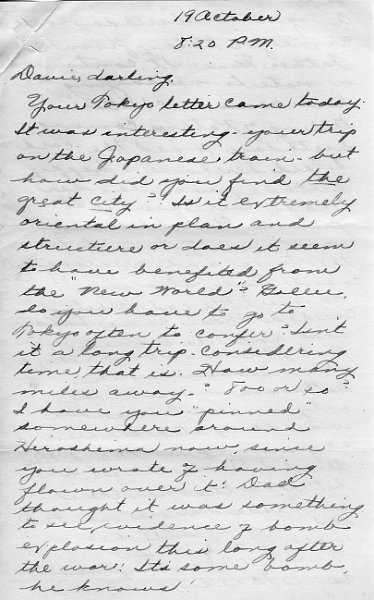 19 October
8:20 P.M.
Davie, darling,
Your Tokyo letter came today.
It was interesting - your trip
on the Japanese train - but
how did you find the
great city? Is it extremely
oriental in plan and
structure or does it seem
to have benefited from
the "New World"?
do you have to go to
Tokyo often to confer? Isn't
it a long trip - considering
time, that is. How many
miles away -? 800 or so?
I have you "pinned"
somewhere around
Hiroshima now, since
you wrote of having
flown over it! Dad
thought it was something
to see evidence of bomb
explosion this long after
the war! It's some bomb,
he knows!